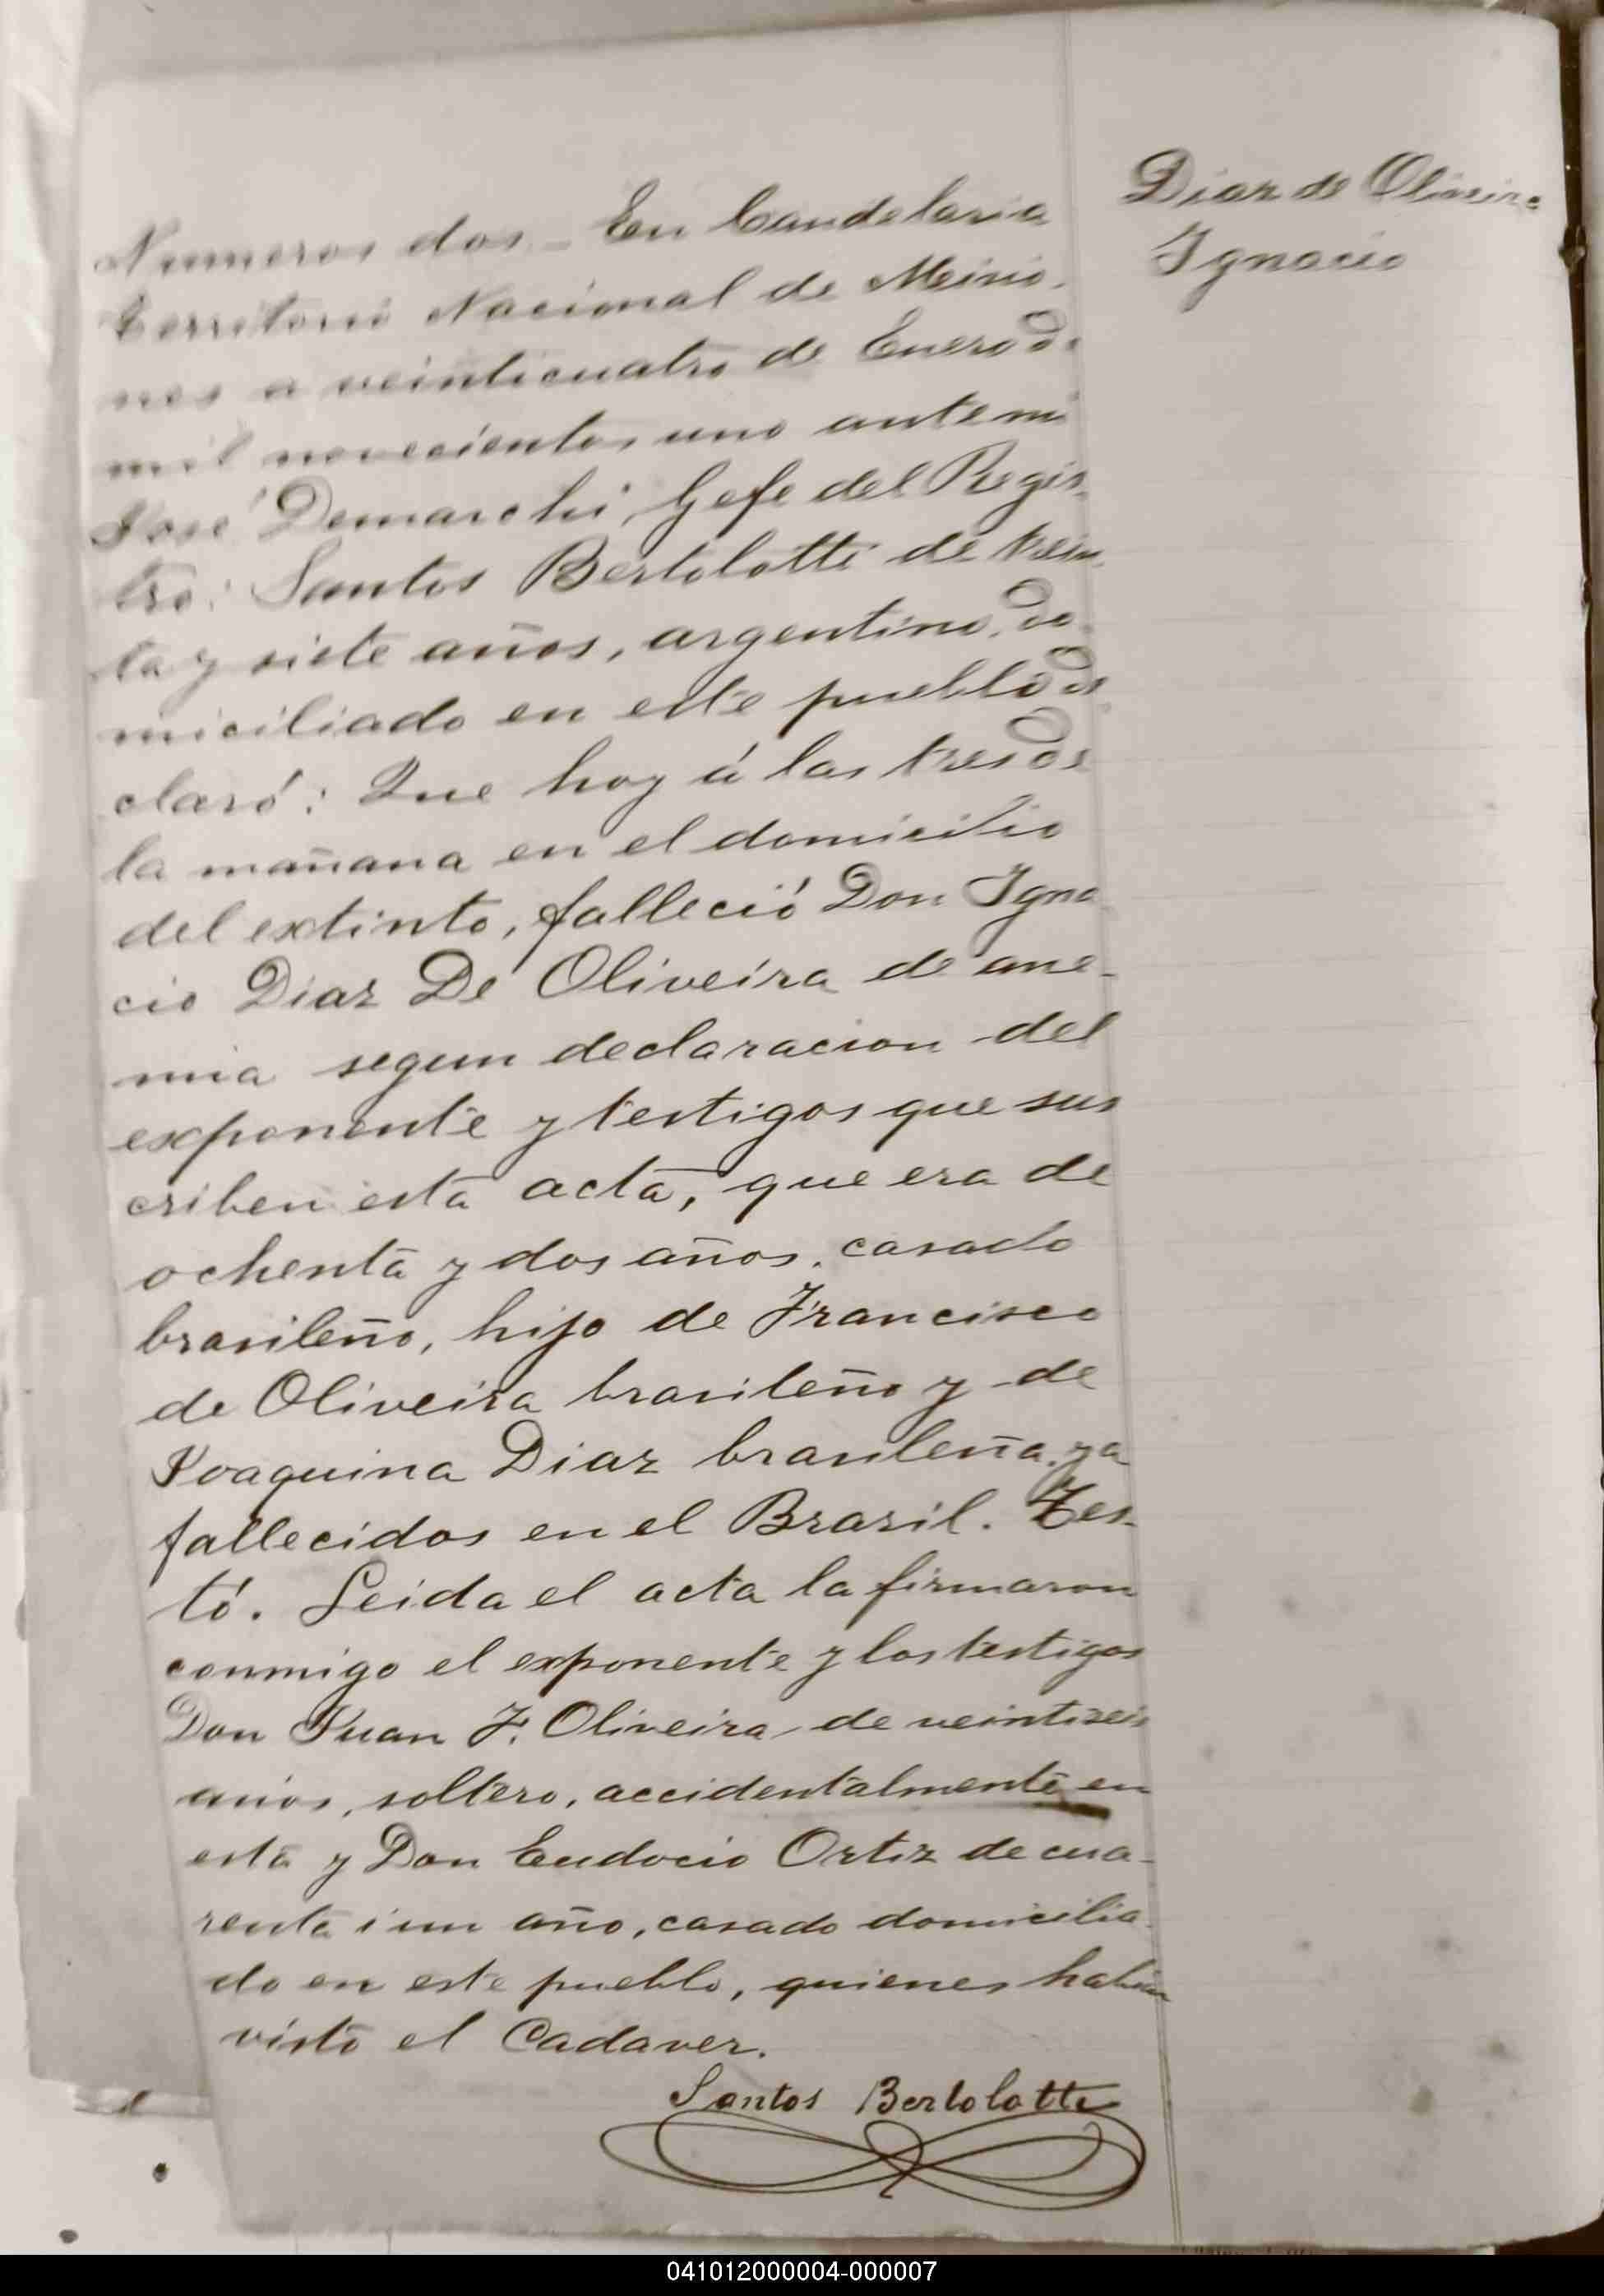 Diaz de Oliveira
Ignacio
Numeros dos - En Candelaria
territorio Nacional de Misio-
nes a veinticuatro de Enero de
mil novecientos uno ante mi
José Demarchi, Gefe del Regis-
tro: Santos Bertolotti de trein-
ta y siete años, argentino, do-
miciliado en este pueblo de-
claró: Que hoy á las tres de
la mañana en el domicilio
del extinto, falleció Don Igna-
cio Diaz De Oliveira de ane-
mia segun declaracion del
exponente y testigos que sus
criben esta acta, que era de
ochenta y dos años, casado
brasileño, hijo de Francisco
de Oliveira brasileño y de
Joaquina Diaz brasileña, ya
fallecidos en el Brazil. Tes-
tó. Leida el acta la firmaron
conmigo el exponente y los testigos
Don Juan F. Oliveira, de veintiseis
años, soltero, accidentalmente en
esta y Don Eudocio Ortiz de cua-
renta i un año, casado domicilia-
do en este pueblo, quienes habian
visto el Cadaver.
Santos Bertolotti
041012000004-000007